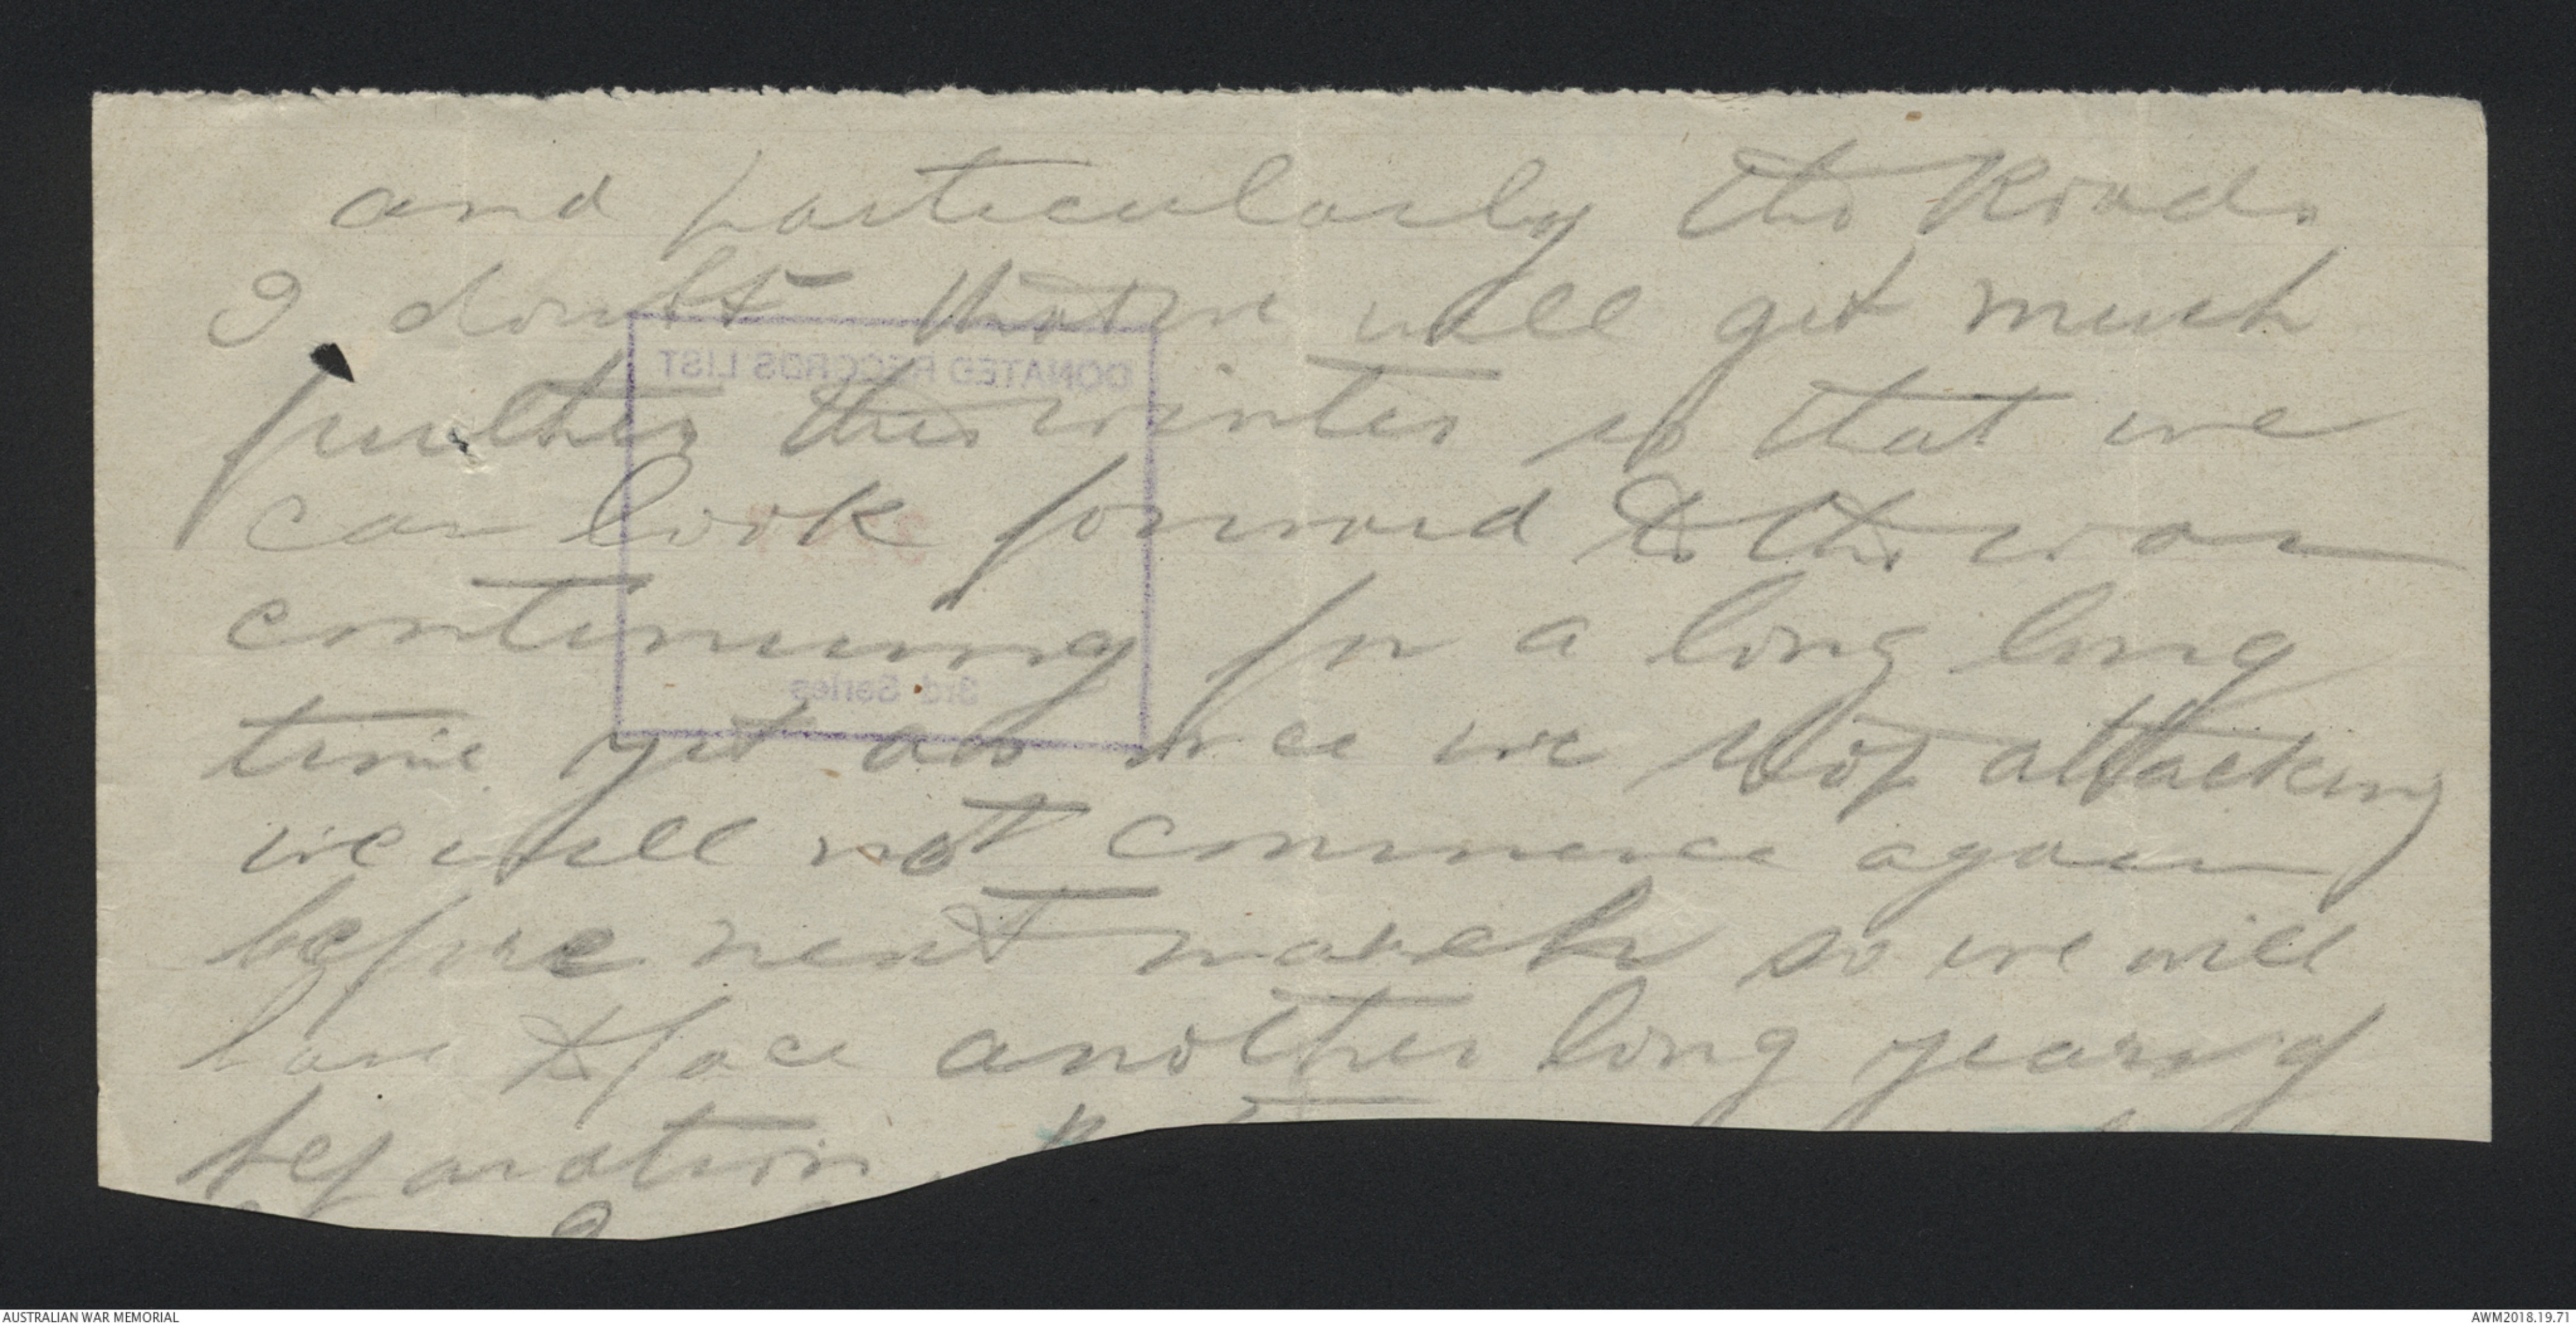 and particularly the Roads
I doubt that we will get much
DONATED RECORDS LIST
further this winter so that we
can look forward to the war
continuing for a long long
3rd Series
time yet as once we stop attacking
we will not commence again
before next march so we will
have to face another long years of
separation.
AUSTRALIAN WAR MEMORIAL
AWM2018.19.71